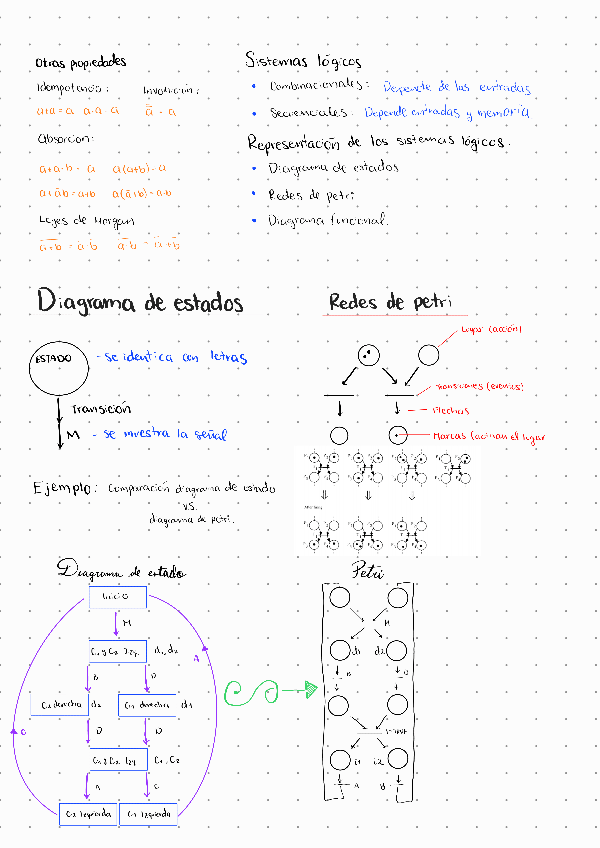 Otras propiedades
Idempotencia:
Involución:
a+a=a a·a=a
a̿ = a
Absorción:
a+a·b = a a(a+b)=a
a+a̅b=a+b a(a̅+b)=a·b
Leyes de Morgan
Sistemas lógicos
• Combinacionales: Depende de las entradas
• Secuenciales: Depende entradas y memoria
Representación de los sistemas lógicos.
• Diagrama de estados
• Redes de petri
• Diagrama funcional.
Diagrama de estados
ESTADO
- se identica con letras
Transición
M - se muestra la señal
Redes de petri
Lugar (acción)
Transiciones (eventos)
Flechas
Marcas (activan el lugar
Ejemplo: Comparación diagrama de estado
v.s.
diagrama de petri.
Diagrama de estado
Inicio
M
C1 y C2 Izq. d1, d2
D
C2 derecha d2
C1 derecha d1
D D
C1 y C2 Izq C1, C2
A C
C2 Izquierda
C1 Izquierda
A
Petri
M
d1 d2
i1 i2
A B